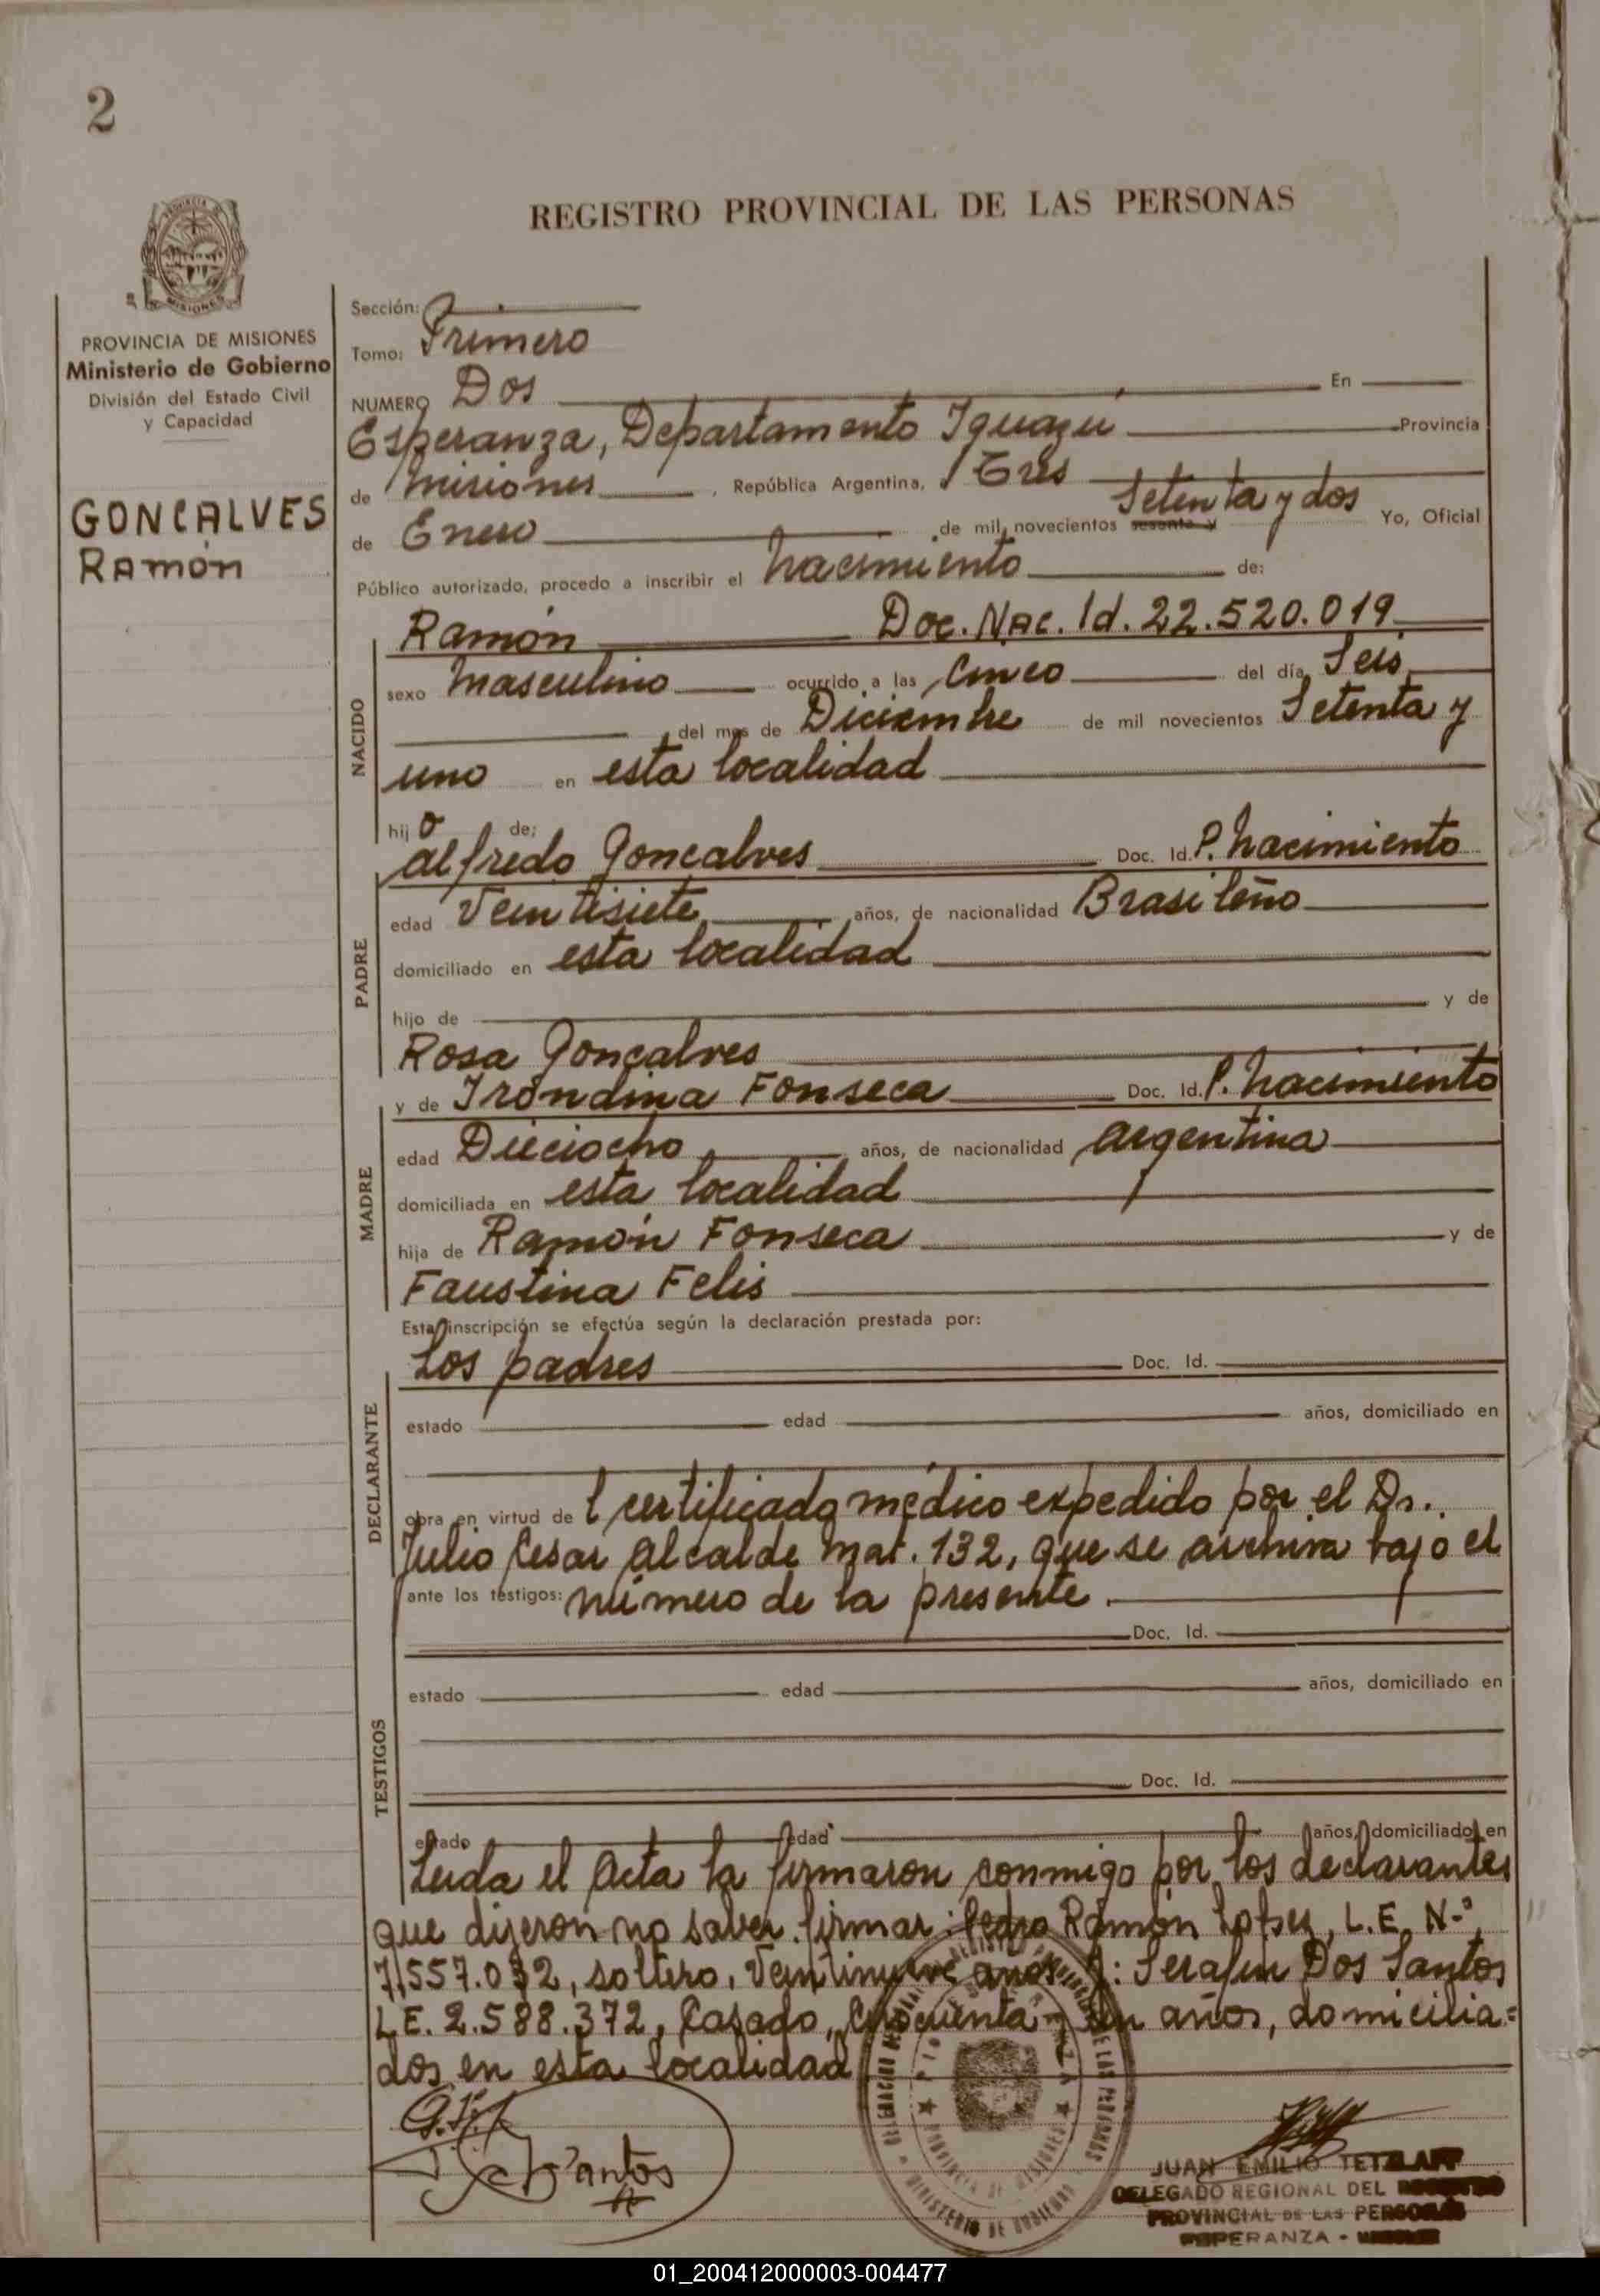 2
REGISTRO PROVINCIAL DE LAS PERSONAS
PROVINCIA DE MISIONES
Ministerio de Gobierno
División del Estado Civil
y Capacidad
GONCALVES
Ramón
Sección:
Tomo: Primero
NUMERO Dos En
Esperanza, Departamento Iguazú Provincia
de Misiones, República Argentina, Tres
de Enero de mil novecientos sesenta y Setenta y dos Yo, Oficial
Público autorizado, procedo a inscribir el nacimiento de:
NACIDO
Ramón Doc. Nac. Id. 22.520.019
sexo masculino ocurrido a las Cinco del día Seis
del mes de Diciembre de mil novecientos Setenta y
uno en esta localidad
hijo de:
PADRE
Alfredo Goncalves Doc. Id. P. nacimiento
edad Veintisiete años, de nacionalidad Brasileño
domiciliado en esta localidad
hijo de y de
Rosa Gonçalves
MADRE
y de Irondina Fonseca Doc. Id. P. nacimiento
edad Dieciocho años, de nacionalidad argentina
domiciliada en esta localidad
hija de Ramón Fonseca y de
Faustina Felis
Esta inscripción se efectúa según la declaración prestada por:
DECLARANTE
Los padres Doc. Id.
estado edad años, domiciliado en
obra en virtud del certificado médico expedido por el Dr.
Julio Cesar Alcalde Mat. 132, que se archiva bajo el
ante los testigos: número de la presente.
TESTIGOS
Doc. Id.
estado edad años, domiciliado en
Doc. Id.
estado edad años, domiciliado en
Leida el Acta la firmaron conmigo por los declarantes
que dijeron no saber firmar: Pedro Ramón L.E. Nº
7.557.032, soltero, Veintinueve años y: Serafin Dos Santos
L.E. 2.588.372, Casado, Cincuenta y un años, domicilia=
dos en esta localidad
Santos
JUAN EMILIO TETZLAFF
DELEGADO REGIONAL DEL REGISTRO
PROVINCIAL DE LAS PERSONAS
ESPERANZA - MISIONES
01_200412000003-004477